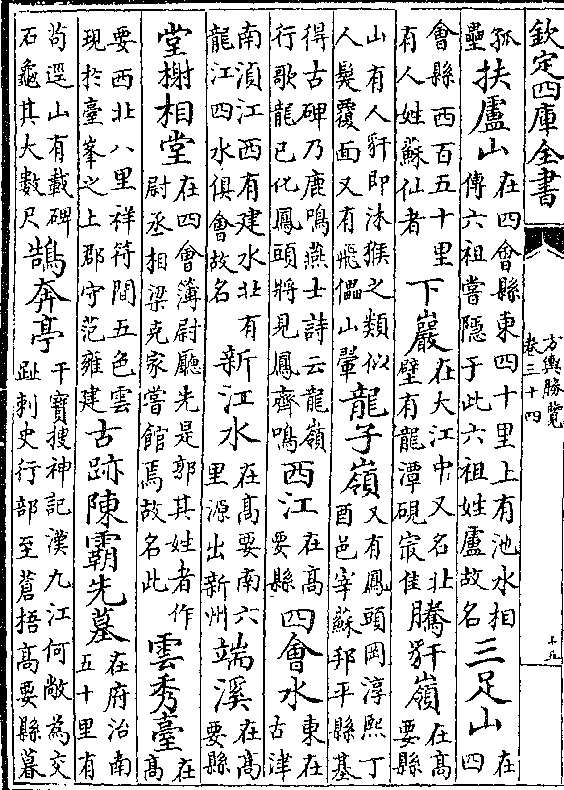 欽定四庫全書
方輿勝覽
卷三十四
十九
孤
壘
扶盧山
在四會縣東四十里上有池水相
傳六祖嘗隱于此六祖姓盧故名
三足山
在
四
會縣西百五十里
有人姓蘇仙者
下巖
在大江中又名北
壁有龍潭硯㝡佳
騰豻嶺
在高
要縣
山有人豻即沐猴之類似
人髮覆面又有飛儡山翬
龍子嶺
又有鳳頭岡淳熙丁
酉邑宰蘇邦平縣基
得古碑乃鹿鳴燕士詩云龍嶺
行歌龍已化鳳頭將見鳳齊鳴
西江
在高
要縣
四會水
東在
古津
南湏江西有建水北有
龍江四水俱會故名
新江水
在高要南六
里源出新州
端溪
在高
要縣
堂榭相堂
在四會簿尉廳先是郭其姓者作
尉丞相梁克家嘗館焉故名此
雲秀臺
在
高
要西北八里祥符間五色雲
現於臺峯之上郡守范雍建
古跡陳霸先墓
在府治南
五十里有
苟逕山有載碑
石龜其大數尺
鵠奔亭
干寶搜神記漢九江何敞為交
趾刺史行部至蒼梧高要縣暮